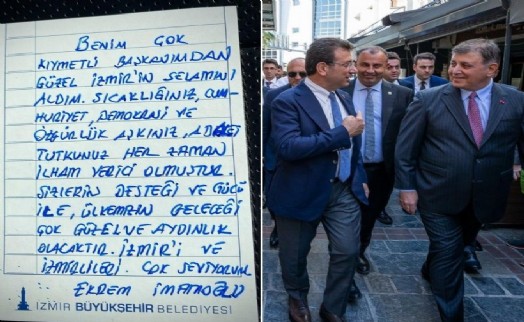 BENİM ÇOK
KIYMETLİ BAŞKANIMDAN
GÜZEL İZMİR'İN SELAMINI
ALDIM. SICAKLIĞINIZ, CUM-
HURİYET, DEMOKRASİ VE
ÖZGÜRLÜK AŞKINIZ, ADALET
TUTKUNUZ HER ZAMAN
İLHAM VERİCİ OLMUŞTUR.
SİZLERİN DESTEĞİ VE GÜCÜ
İLE, ÜLKEMİZİN GELECEĞİ
ÇOK GÜZEL VE AYDINLIK
OLACAKTIR. İZMİR'İ VE
İZMİRLİLERİ ÇOK SEVİYORUM.
EKREM İMAMOĞLU
İZMİR BÜYÜKŞEHİR BELEDİYESİ